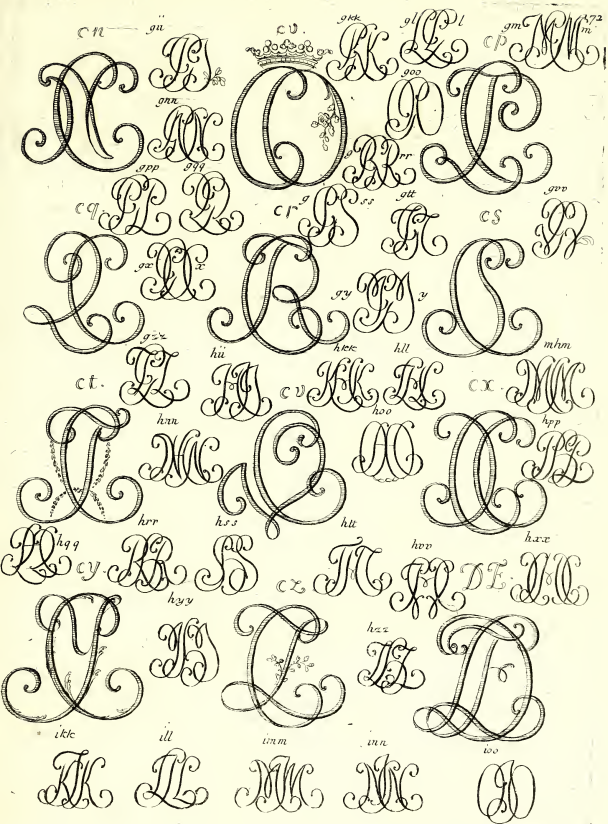 cn gii co. gkk gl l cp gm m 172
gnn goo
g rr
gpp gqq
cq cr g ss gtt cs gvv
gx x gy y
gzz hii hkk hll mhm
ct. cv cx
hnn hoo hpp
hqq hrr hss htt hvv hxx
cy cz DE.
hyy hzz
ikk ill imm inn ioo